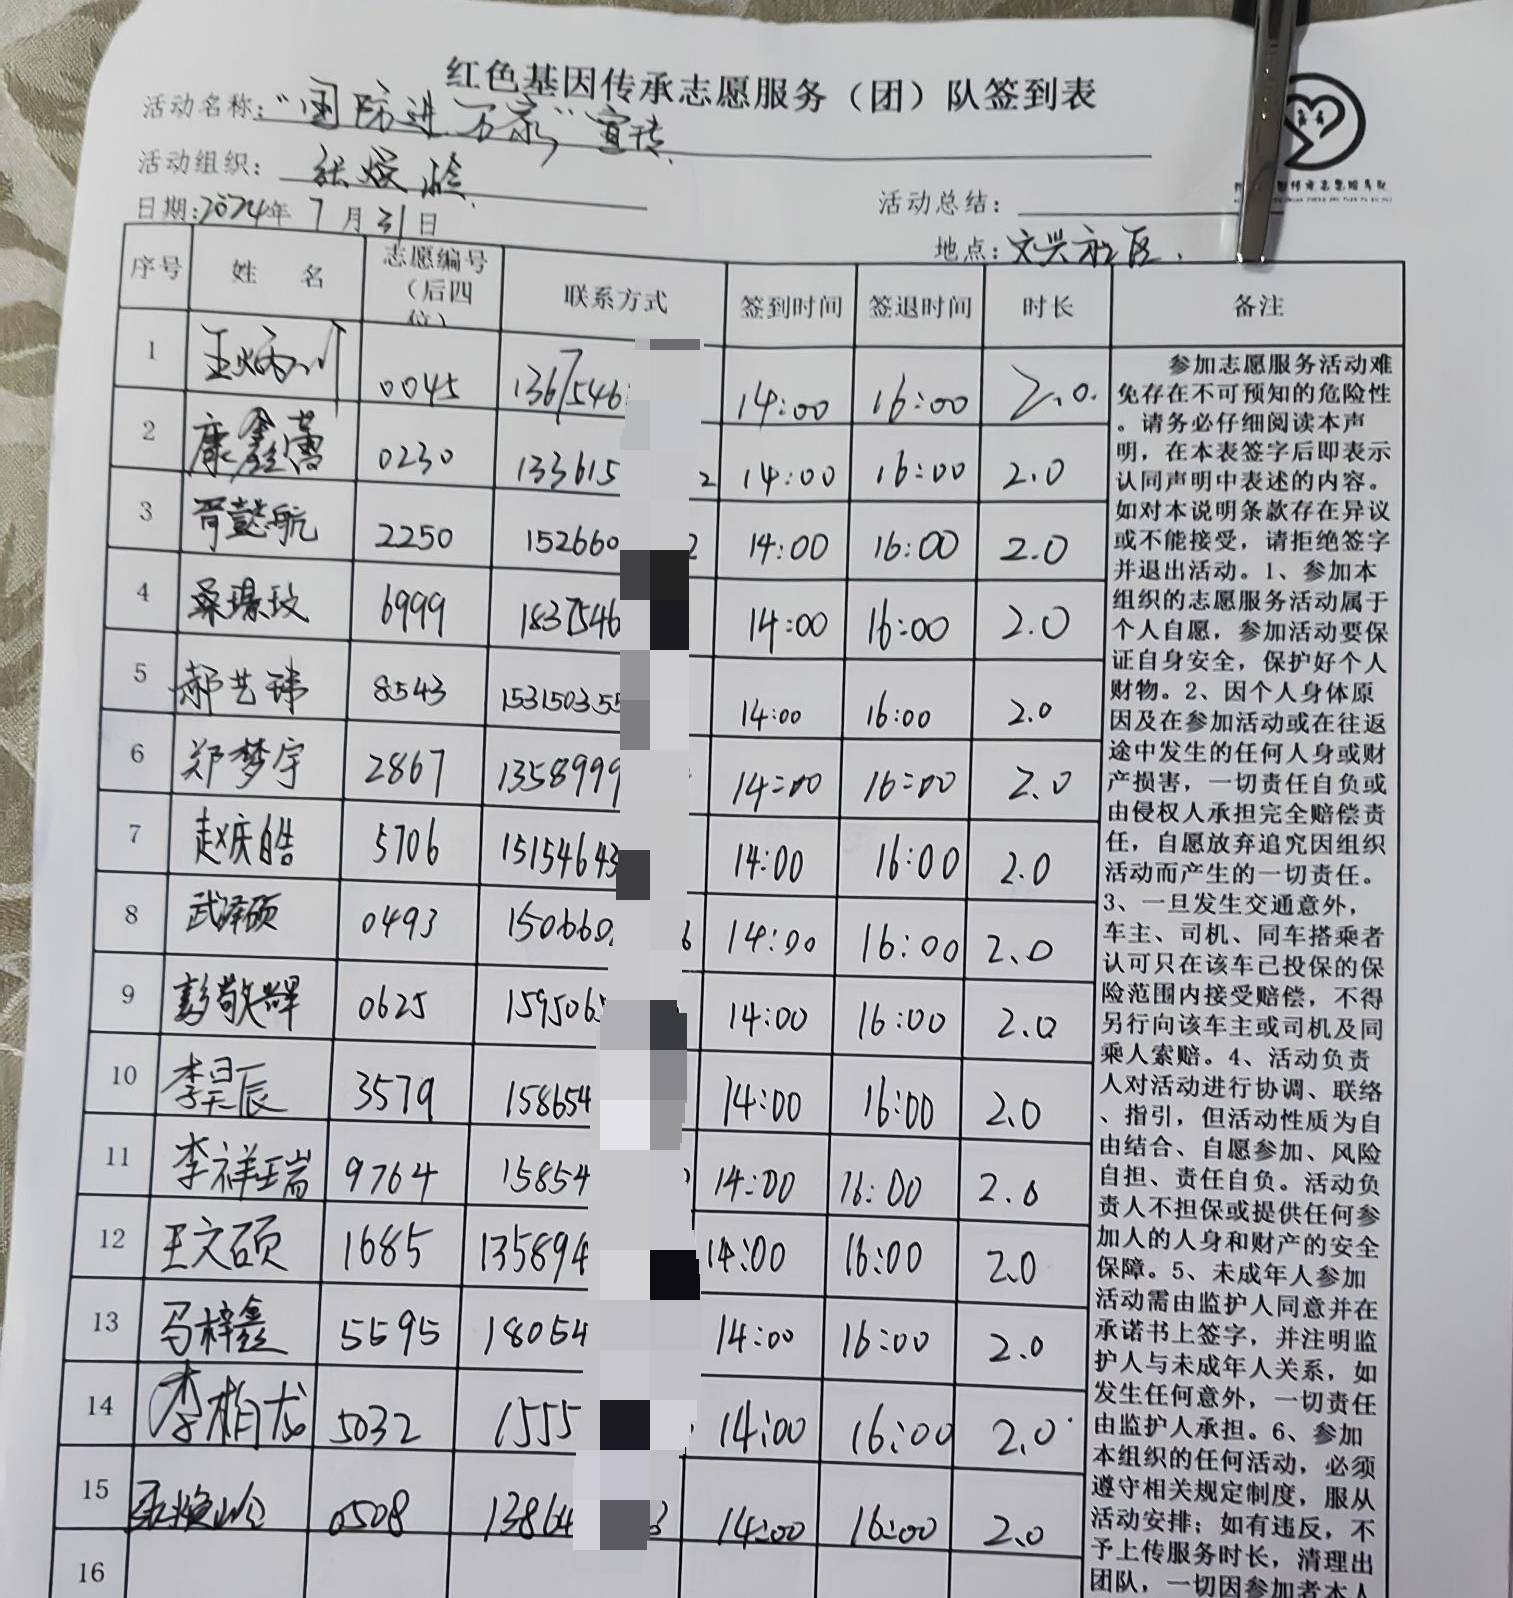 红色基因传承志愿服务（团）队签到表
活动名称："国防进万家"宣传
活动组织：
日期：2024年7月31日
活动总结：
地点：文兴社区.
序号 姓名 志愿编号（后四位） 联系方式 签到时间 签退时间 时长 备注
1 王炳川 0045 1367546 14:00 16:00 2.0.
2 康鑫蕾 0230 133615 2 14:00 16:00 2.0
3 胥懿航 2250 152660 2 14:00 16:00 2.0
4 桑璟玟 6999 1837546 14:00 16:00 2.0
5 郝艺玮 8543 153150355 14:00 16:00 2.0
6 郑梦宇 2867 1358999 14:00 16:00 2.0
7 赵庆皓 5706 15154643 14:00 16:00 2.0
8 武泽硕 0493 150660 6 14:00 16:00 2.0
9 彭敬辉 0625 159506 14:00 16:00 2.0
10 李昊辰 3579 158654 14:00 16:00 2.0
11 李祥瑞 9764 15854 14:00 16:00 2.0
12 王文硕 1685 135894 14:00 16:00 2.0
13 马梓鑫 5595 18054 14:00 16:00 2.0
14 李柏龙 5032 1555 14:00 16:00 2.0
15 0508 13864 3 14:00 16:00 2.0
16
参加志愿服务活动难
免存在不可预知的危险性
。请务必仔细阅读本声
明，在本表签字后即表示
认同声明中表述的内容。
如对本说明条款存在异议
或不能接受，请拒绝签字
并退出活动。1、参加本
组织的志愿服务活动属于
个人自愿，参加活动要保
证自身安全，保护好个人
财物。2、因个人身体原
因及在参加活动或在往返
途中发生的任何人身或财
产损害，一切责任自负或
由侵权人承担完全赔偿责
任，自愿放弃追究因组织
活动而产生的一切责任。
3、一旦发生交通意外，
车主、司机、同车搭乘者
认可只在该车已投保的保
险范围内接受赔偿，不得
另行向该车主或司机及同
乘人索赔。4、活动负责
人对活动进行协调、联络
、指引，但活动性质为自
由结合、自愿参加、风险
自担、责任自负。活动负
责人不担保或提供任何参
加人的人身和财产的安全
保障。5、未成年人参加
活动需由监护人同意并在
承诺书上签字，并注明监
护人与未成年人关系，如
发生任何意外，一切责任
由监护人承担。6、参加
本组织的任何活动，必须
遵守相关规定制度，服从
活动安排；如有违反，不
予上传服务时长，清理出
团队，一切因参加者本人